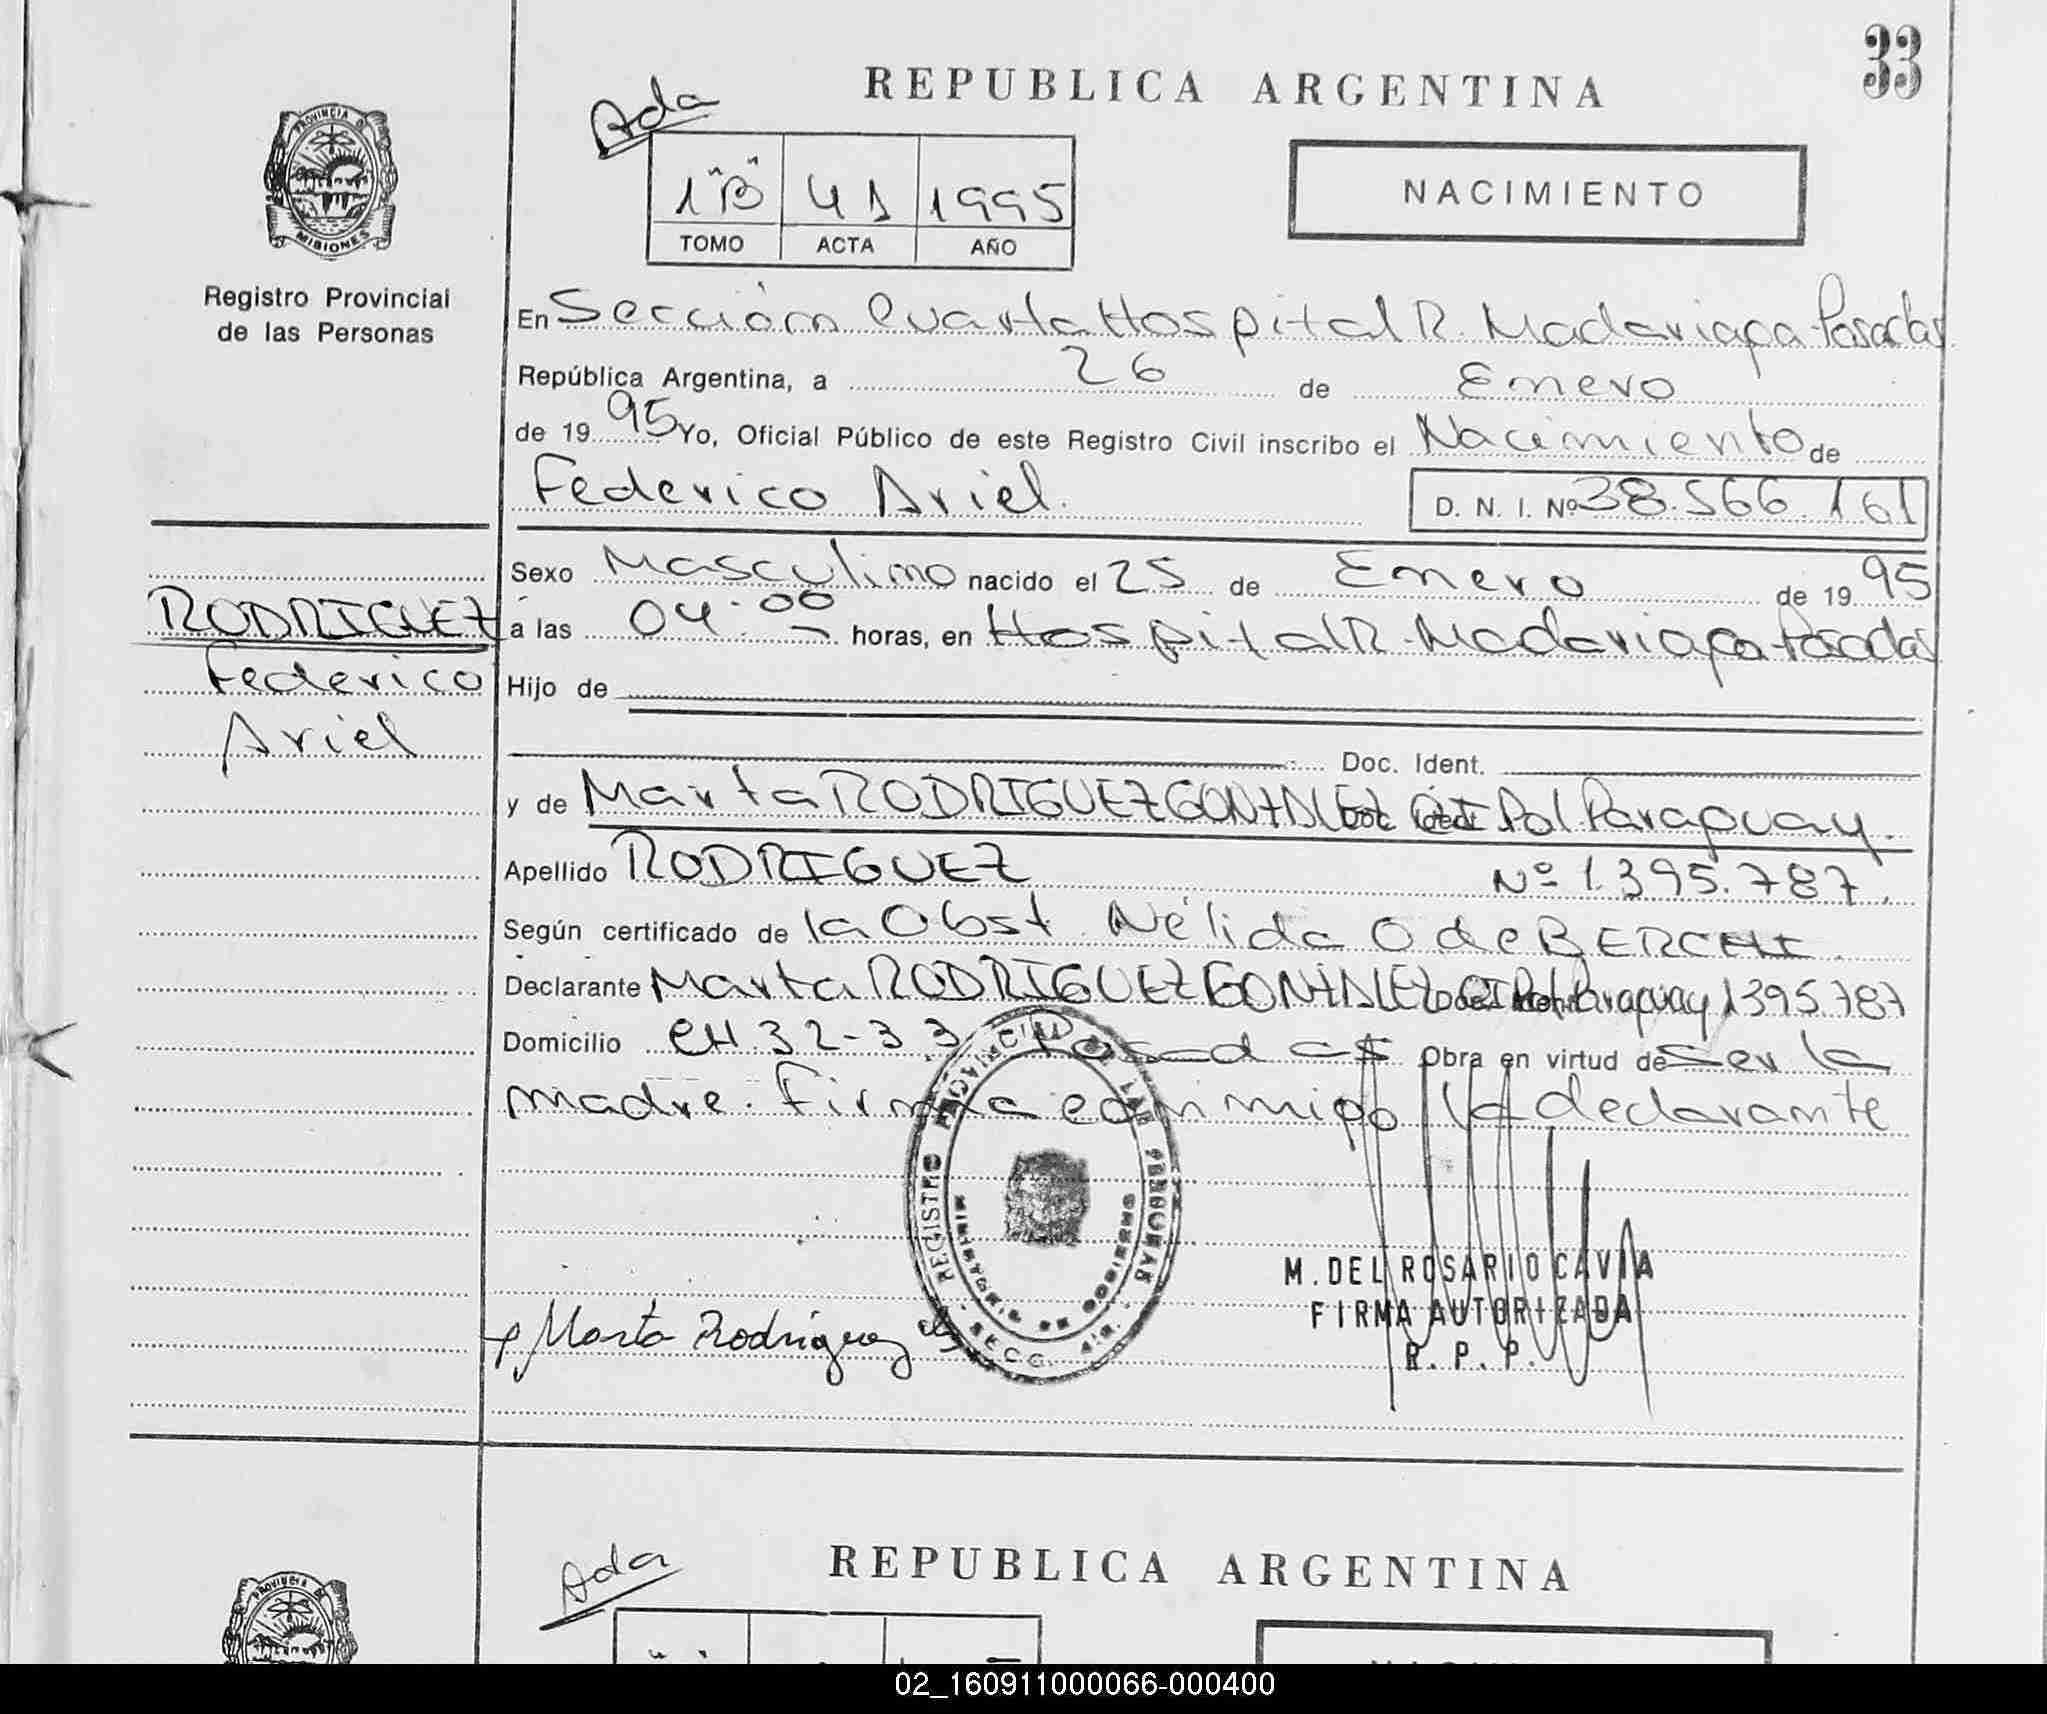 33
REPUBLICA ARGENTINA
Ada
1"B" 41 1995
TOMO ACTA AÑO
NACIMIENTO
PROVINCIA DE
MISIONES
Registro Provincial
de las Personas
En Sección Cuarta Hospital R. Madariaga-Posadas
República Argentina, a 26 de Enero
de 1995 Yo, Oficial Público de este Registro Civil inscribo el Nacimiento de
Federico Ariel. D. N. I. Nº 38.566.161
Sexo Masculino nacido el 25 de Enero de 1995
a las 04.00 horas, en Hospital R. Madariaga Posadas
RODRIGUEZ
Federico
Ariel
Hijo de
Doc. Ident.
y de Marta RODRIGUEZ GONZALEZ CI Pol Paraguay.
Apellido RODRIGUEZ Nº 1.395.787.
Según certificado de la Obst. Nélida O de
Declarante Marta RODRIGUEZ GONZALEZ CI Pol Paraguay 1395.787
Domicilio CH 32-33 Posadas Obra en virtud de ser la
madre. Firma conmigo la declarante
REGISTRO PROVINCIAL DE LAS PERSONAS
MINISTERIO DE GOBIERNO
SECC. 4ta.
Marta Rodriguez
M. DEL ROSARIO CAVIA
FIRMA AUTORIZADA
R. P. P.
Ada
REPUBLICA ARGENTINA
PROVINCIA DE
02_160911000066-000400